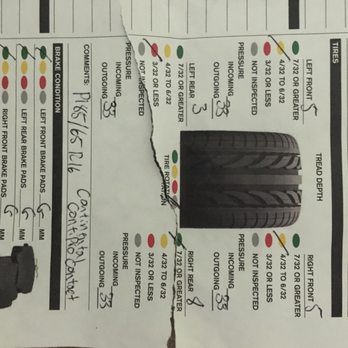 TIRES
LEFT FRONT 5
7/32 OR GREATER
4/32 TO 6/32
3/32 OR LESS
NOT INSPECTED
PRESSURE
INCOMING
OUTGOING 33
TREAD DEPTH
RIGHT FRONT 5
7/32 OR GREATER
4/32 TO 6/32
3/32 OR LESS
NOT INSPECTED
PRESSURE
INCOMING
OUTGOING 33
LEFT REAR 3
7/32 OR GREATER
4/32 TO 6/32
3/32 OR LESS
NOT INSPECTED
PRESSURE
INCOMING
OUTGOING 33
TIRE ROTATION
RIGHT REAR 8
7/32 OR GREATER
4/32 TO 6/32
3/32 OR LESS
NOT INSPECTED
PRESSURE
INCOMING
OUTGOING 33
COMMENTS: Continental
ContiProContact
BRAKE CONDITION
LEFT FRONT BRAKE PADS 6 MM
LEFT REAR BRAKE PADS 6 MM
RIGHT FRONT BRAKE PADS 6 MM